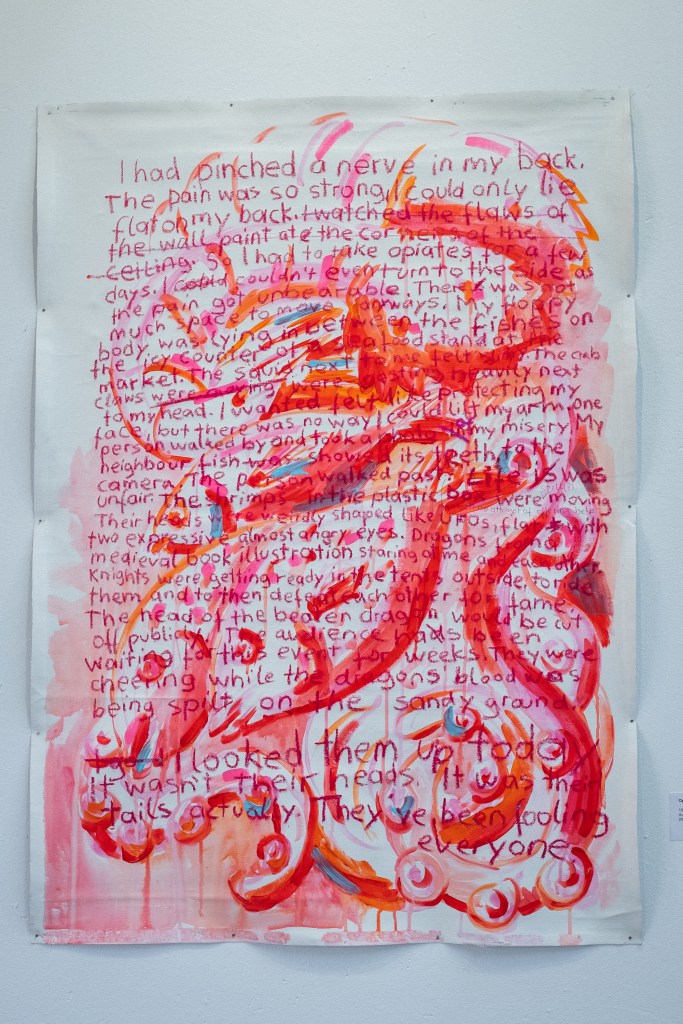 I had pinched a nerve in my back.
The pain was so strong, I could only lie
flat on my back. I watched the flaws of
the wall paint ate the corners of the
ceiling. So I had to take opiates for a few
days. I could couldn't even turn to the side as
the pain got unbearable. There was not
much space to move anyways. My floppy
body was lying in between the fishes on
the icy counter of a seafood stand at the
market. The squid next to me felt slimy. The crab
claws were moving, were beating heavily next
to my head. I wanted felt like protecting my
face, but there was no way I could lift my arm. One
person walked by and took a photo in my misery. My
neighbour fish was showed its teeth to the
camera. The person walked past. Life is was
unfair. The shrimps in the plastic box were moving
Their heads were weirdly shaped like UFOs, flat with
two expressive almost angry eyes. Dragons from a
medieval book illustration staring at me and each other.
Knights were getting ready in the tents outside to ride
them and to then defeat each other for fame.
The head of the beaten dragon would be cut
off publicly. The audience had been
waiting for this event for weeks. They were
cheering while the dragons blood was
being spilt on the sandy ground.
I looked them up today
It wasn't their heads. It was their
tails actually. They've been fooling
everyone